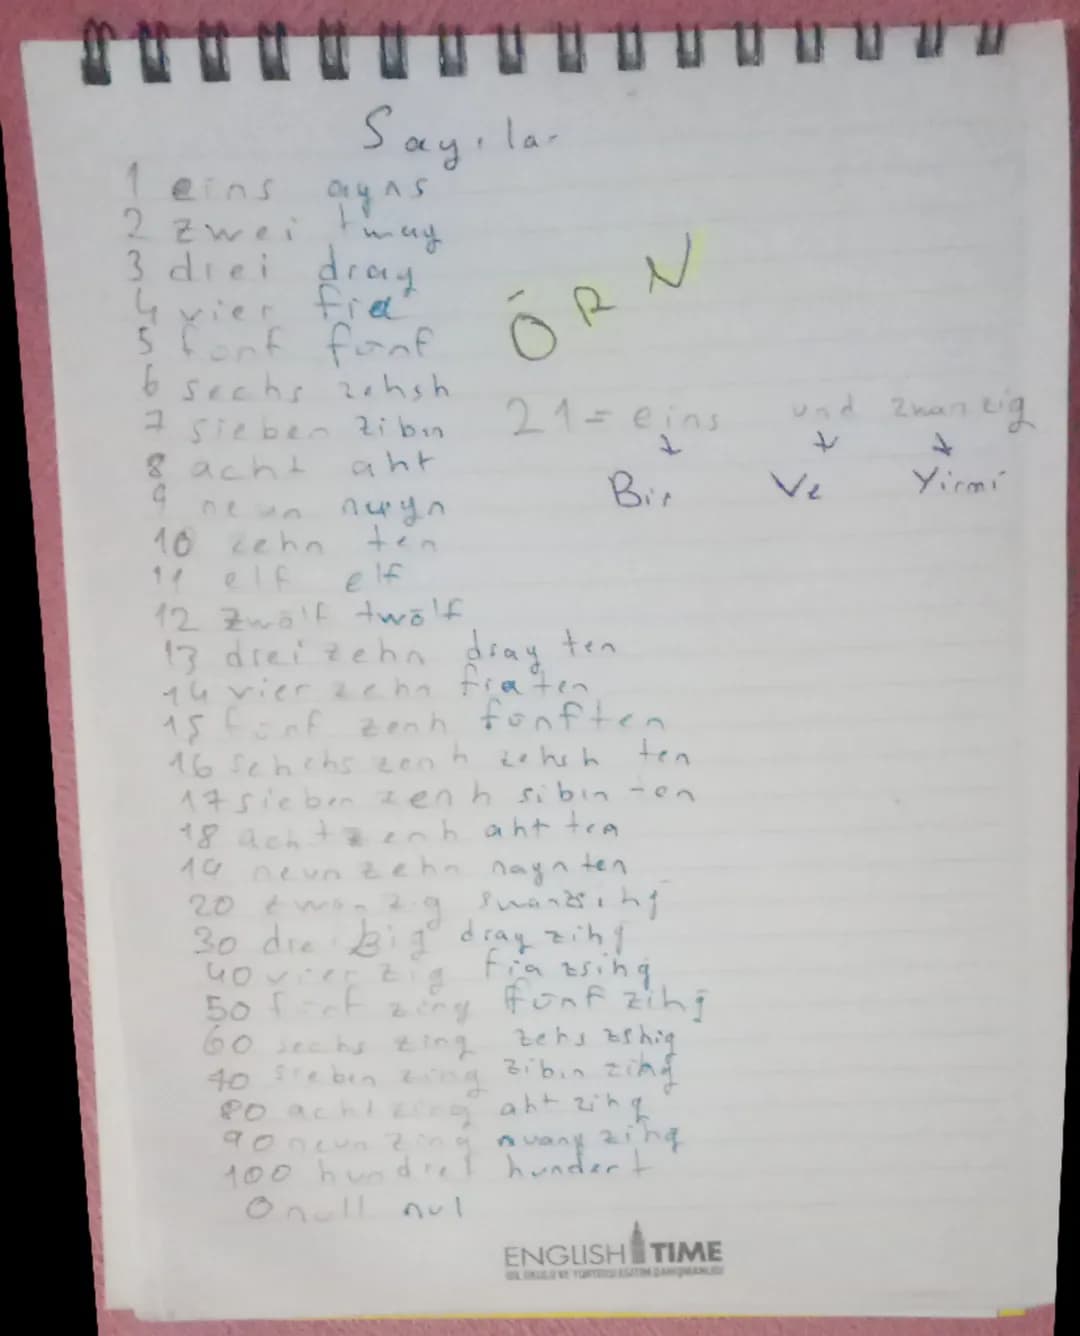 Sayılar
1 eins ayns
2 zwei tway
3 drei dray
4 vier fia
5 fünf fünf
6 sechs zehsh
7 sieben zibın
8 acht aht
9 neun
10 zehn ten
11 elf elf
12 zwölf twölf
13 drei zehn dray ten
14 vier zehn fia ten
15 fünf zenh fünften
16 sehchs zenh zehsh ten
17 sieben zenh sibın ten
18 acht zenh aht ten
19 neun zehn nayn ten
20 zwanzig
30 dreißig dray zihg
40 vier zig fia zsihg
50 fünf zing fünf zihg
60 sechs zing zehs zshig
70 sieben zing zibın zihg
80 acht zing aht zihg
90 neun zing zihg
100 hundret hundert
0 null nul
ÖRN
21 = eins und zwanzig
Bir Ve Yirmi
ENGLISH TIME
DİL OKULU VE YURTDIŞI EĞİTİM DANIŞMANLIĞI